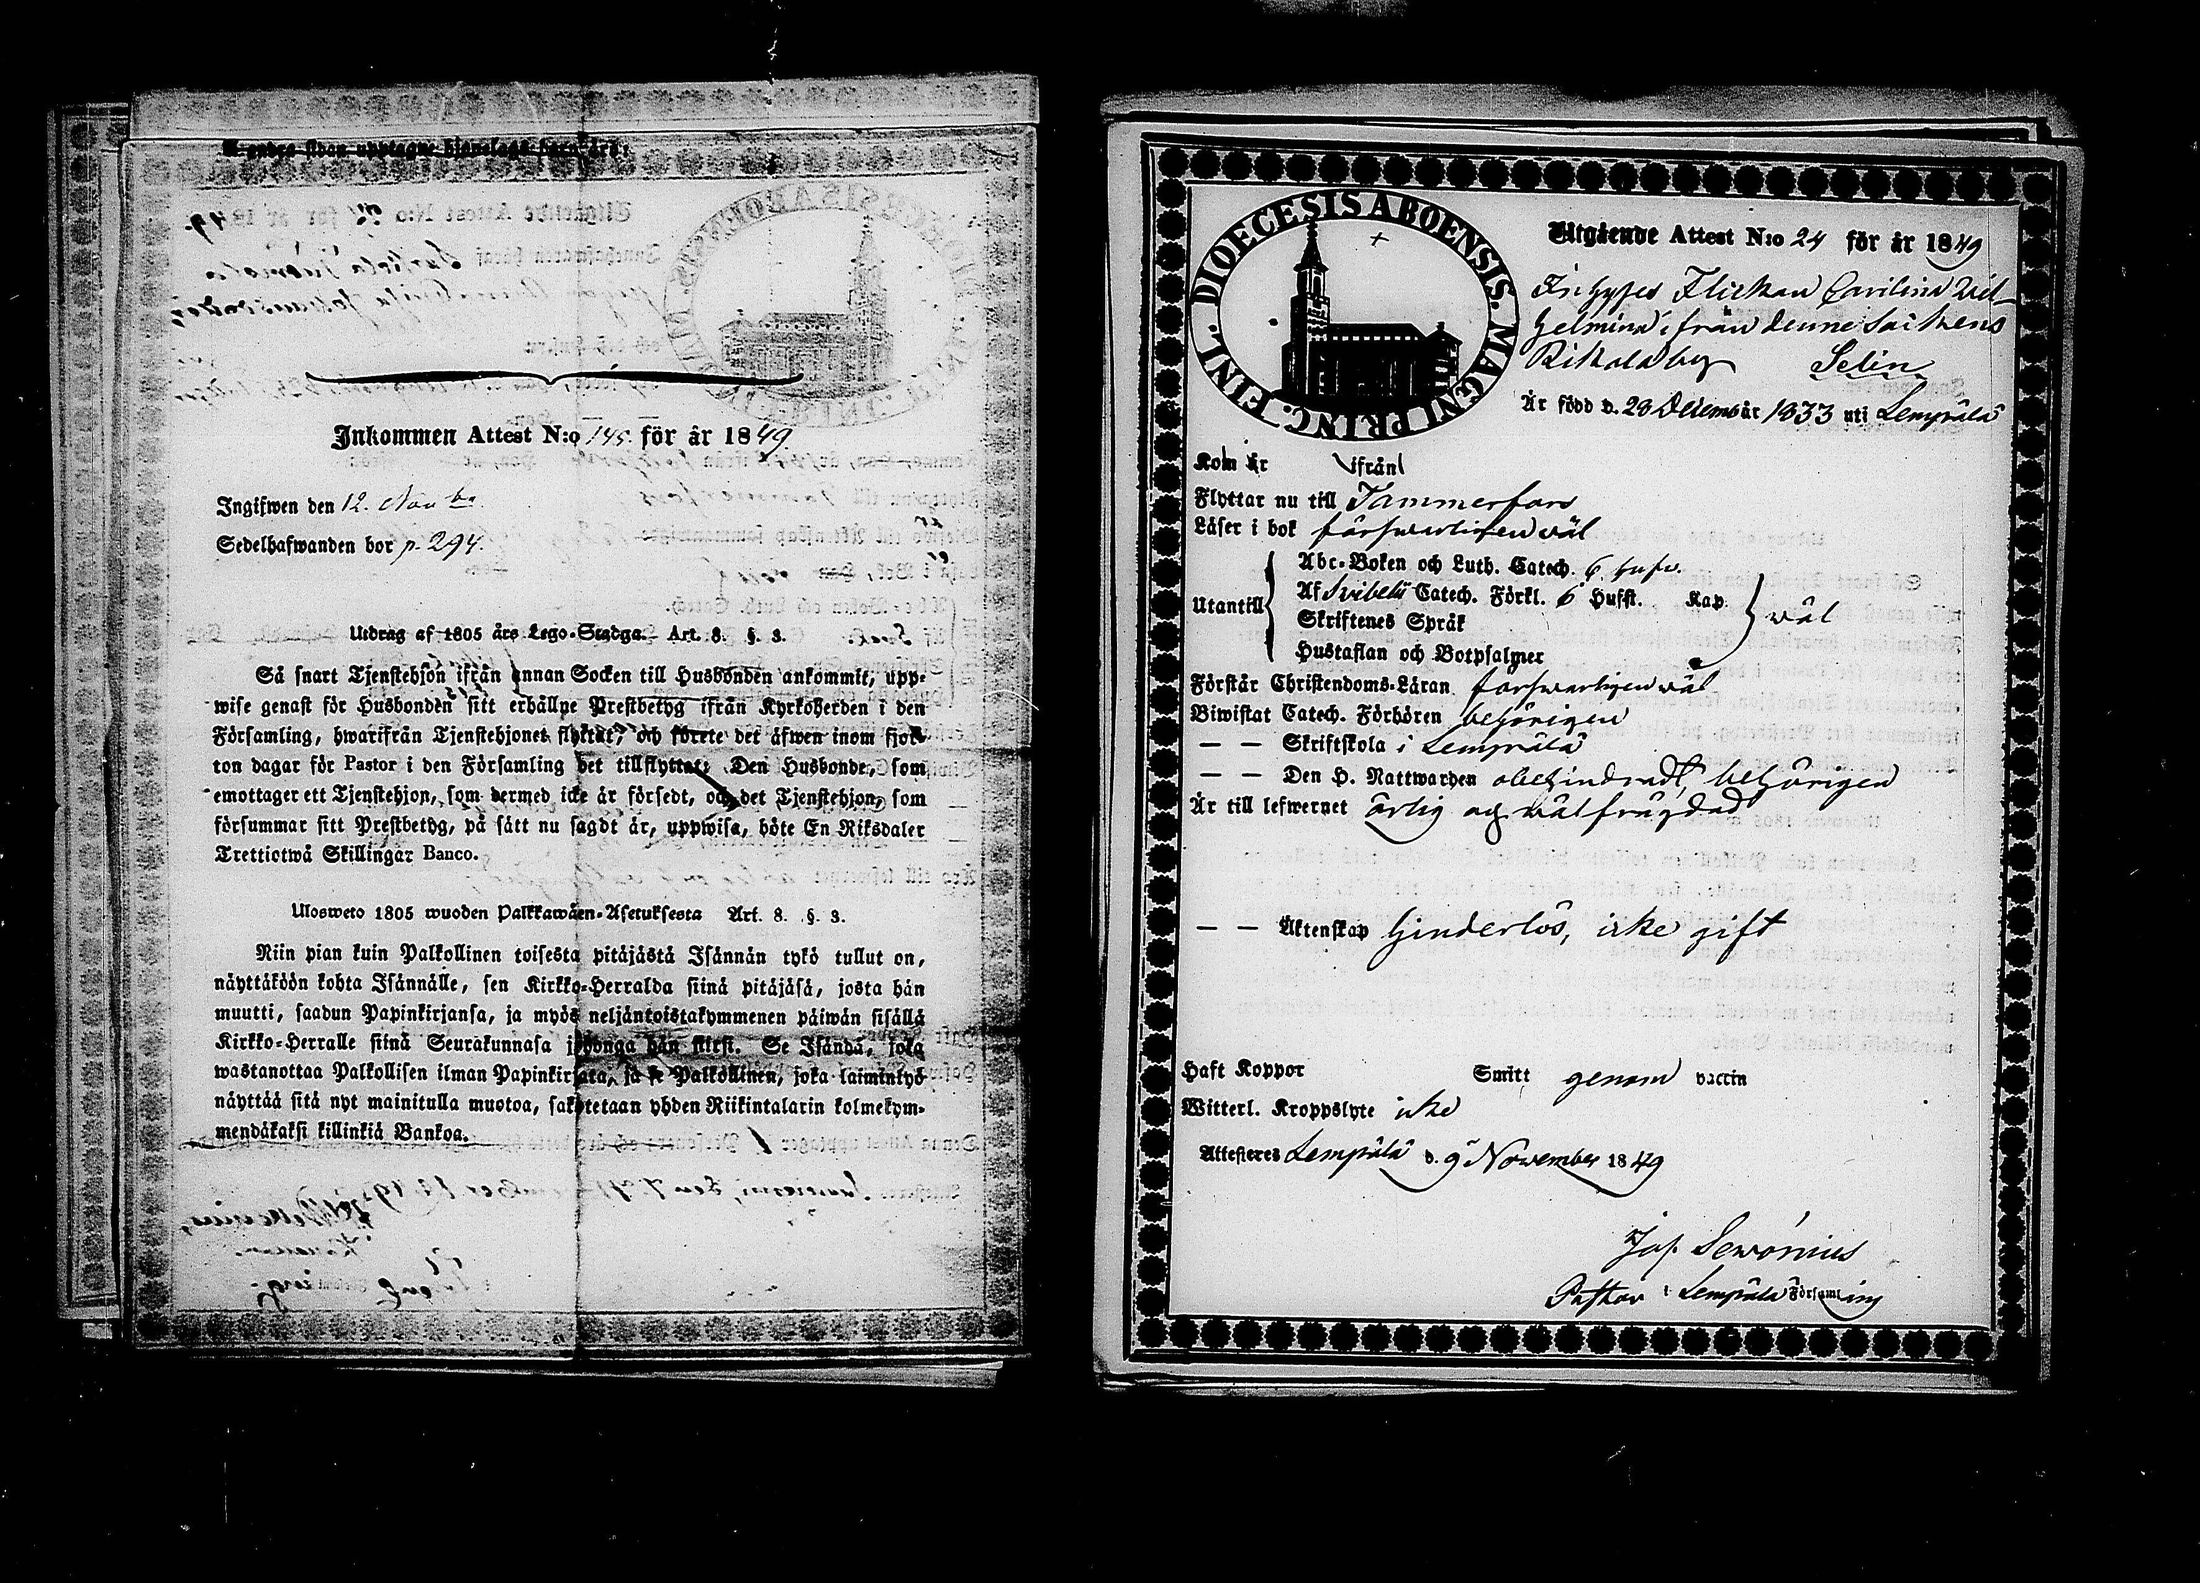 Å andra sidan upptagne hjonelags barn äro:
Inkommen Attest N:o 145. för år 1849.
Ingifwen den 12. Novbr.
Sedelhafwanden bor p. 294.
Utdrag af 1805 års Lego-Stadga. Art. 8. §. 3.
Så snart Tjenstehjon ifrån annan Socken till Husbonden ankommit, upp-
wise genast för Husbonden sitt erhållne Prestbetyg ifrån Kyrkoherden i den
Församling, hwarifrån Tjenstehjonet flyttat, och förete det äfwen inom fjor-
ton dagar för Pastor i den Församling det tillflyttat. Den Husbonde, som
emottager ett Tjenstehjon, som dermed icke är försedt, och det Tjenstehjon, som
försummar sitt Prestbetyg, på sätt nu sagdt är, uppwisa, böte En Riksdaler
Trettiotwå Skillingar Banco.
Ulosweto 1805 wuoden Palkkawäen-Asetuksesta Art. 8. §. 3.
Niin pian kuin Palkollinen toisesta pitäjästä Isännän tykö tullut on,
näyttäköön kohta Isännälle, sen Kirkko-Herralda siinä pitäjäsä, josta hän
muutti, saadun Papinkirjansa, ja myös neljäntoistakymmenen päiwän sisällä
Kirkko-Herralle siinä Seurakunnasa johonga hän siirsi. Se Isändä, joka
wastanottaa Palkollisen ilman Papinkirjata, ja se Palkollinen, joka laiminlyö
näyttää sitä nyt mainitulla muotoa, sakotetaan yhden Riikintalarin kolmekym-
mendäkaksi killinkiä Bankoa.
FINL. DIOECESIS ABOENSIS. MAGNI PRINC.
Utgående Attest N:o 24 för år 1849
Inhyses Flickan Carolina Wil-
helmina ifrån denne Sockens
Rikalaby Selin
Är född d. 23 December 1833 uti Lempälä
Kom år ifrån
Flyttar nu till Tammerfors
Läser i bok förswarligen wäl
Abc-Boken och Luth. Catech. 6. hufw.
Utantill Af Svibelii Catech. Förkl. 6 Hufst. Kap. wäl
Skriftenes Språk
Hustaflan och Botpsalmer
Förstår Christendoms-Läran förswarligen wäl
Biwistat Catech. Förhören behörigen
— — Skriftskola i Lempälä
— — Den H. Nattwarden obehindradt, behörigen
Är till lefwernet ärlig och wälfrägdad
— — Äktenskap hinderlös, icke gift
Haft Koppor Smitt genom vaccin
Witterl. Kroppslyte icke
Attesteres Lempälä d. 9 November 1849
Jos. Sewonius
Pastor i Lempälä Församling